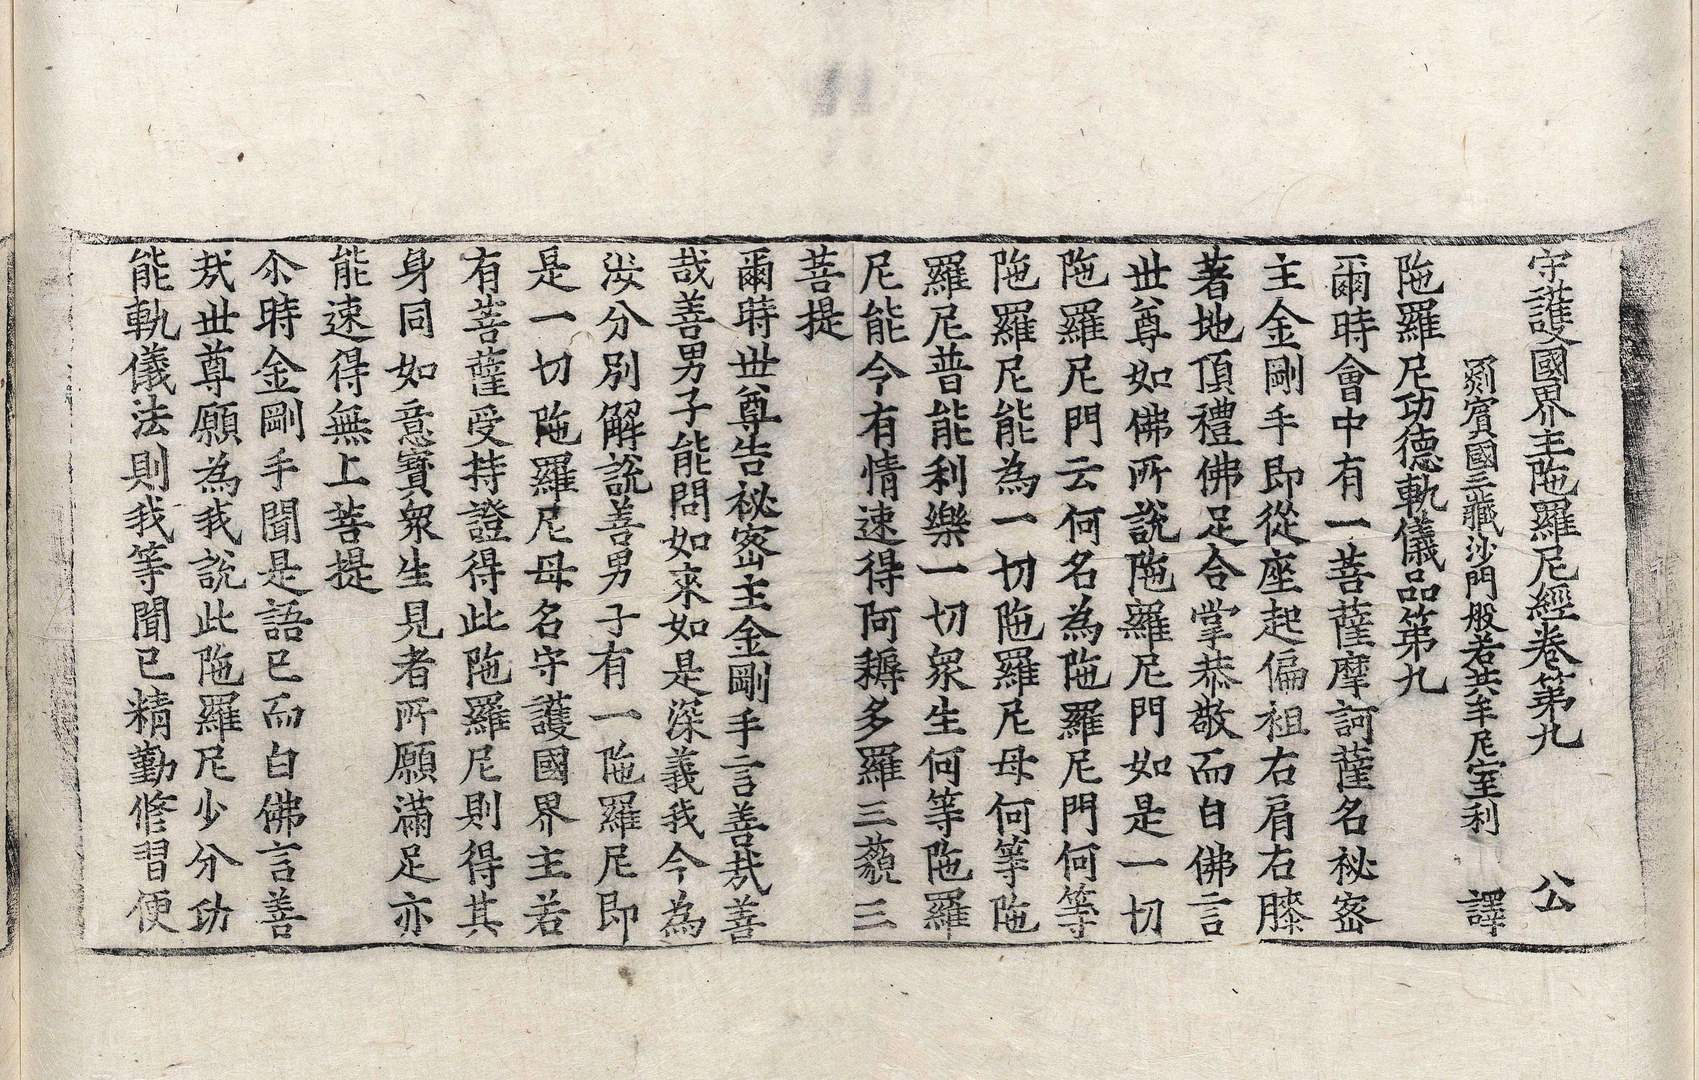 守護國界主陁羅尼經卷第九 公
罽賓國三藏沙門般若共牟尼室利 譯
陁羅尼功德軌儀品第九
爾時會中有一菩薩摩訶薩名祕密
主金剛手即從座起偏袒右肩右膝
著地頂禮佛足合掌恭敬而白佛言
世尊如佛所說陁羅尼門如是一切
陁羅尼門云何名為陁羅尼門何等
陁羅尼能為一切陁羅尼母何等陁
羅尼普能利樂一切衆生何等陁羅
尼能令有情速得阿耨多羅三藐三
菩提
爾時世尊告祕密主金剛手言善㢤善
哉善男子能問如來如是深義我今為
汝分別解說善男子有一陁羅尼即
是一切陁羅尼母名守護國界主若
有菩薩受持證得此陁羅尼則得其
身同如意寶衆生見者所願滿足亦
能速得無上菩提
尒時金剛手聞是語已而白佛言善
㢤世尊願為我說此陁羅尼少分功
能軌儀法則我等聞已精勤修習便